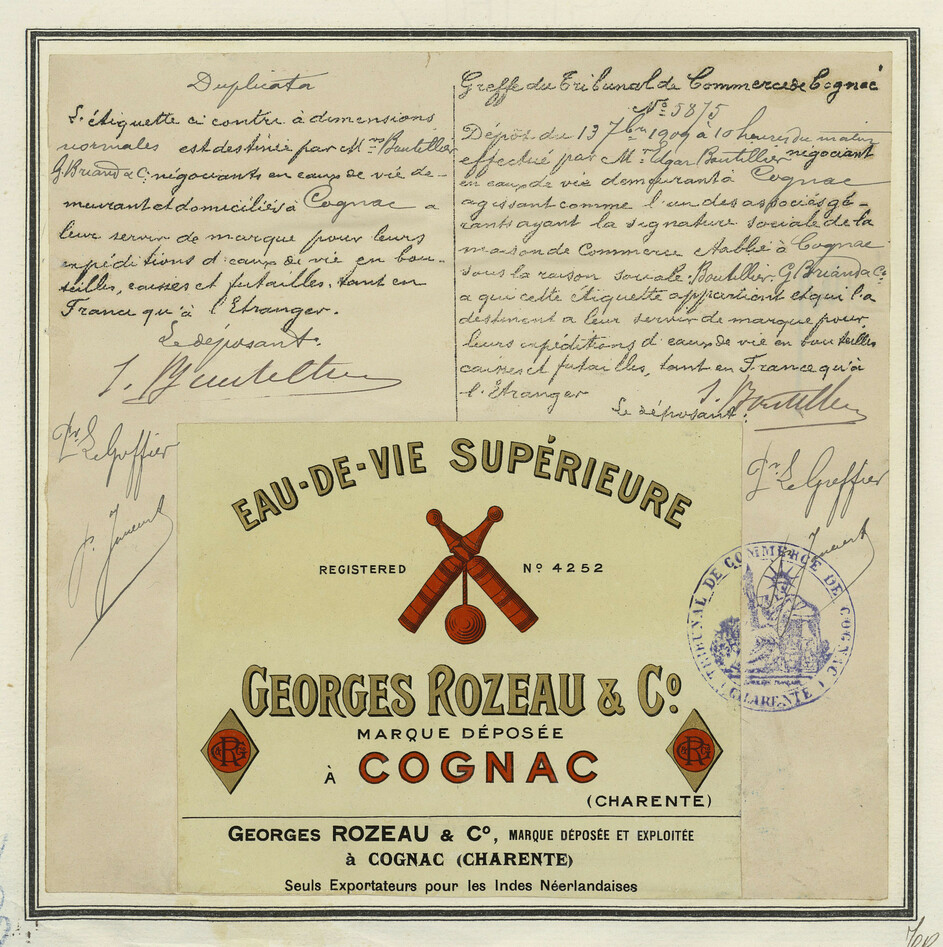 Duplicata
L'étiquette ci contre à dimensions
normales est destinée par M.rs Boutellier
G. Briand & Cie négociants en eaux de vie de-
meurant et domiciliés à Cognac a
leur servir de marque pour leurs
expéditions d'eaux de vie en bou-
teilles, caisses et futailles, tant en
France qu'à l'Etranger.
Le déposant.
Pr Le Greffier
Greffe du Tribunal de Commerce de Cognac
No 5875
Dépôt du 13 7bre 1909 à 10 heures du matin
effectué par Mr Edgar Boutillier négociant
en eaux de vie demeurant à Cognac
agissant comme l'un des associés gé-
rants ayant la signature sociale de la
maison de Commerce établie à Cognac
sous la raison sociale: Boutellier G. Briand & Co
a qui cette étiquette appartient et qui l'a
destinent a leur servir de marque pour
leurs expéditions d'eaux de vie en bouteilles
caisses et futailles, tant en France qu'à
l'Etranger
Le déposant.
Pr Le Greffier
TRIBUNAL DE COMMERCE DE COGNAC
(CHARENTE)
EAU-DE-VIE SUPÉRIEURE
REGISTERED No 4252
GEORGES ROZEAU & Co.
MARQUE DÉPOSÉE
À COGNAC
(CHARENTE)
GEORGES ROZEAU & Co, MARQUE DÉPOSÉE ET EXPLOITÉE
à COGNAC (CHARENTE)
Seuls Exportateurs pour les Indes Néerlandaises